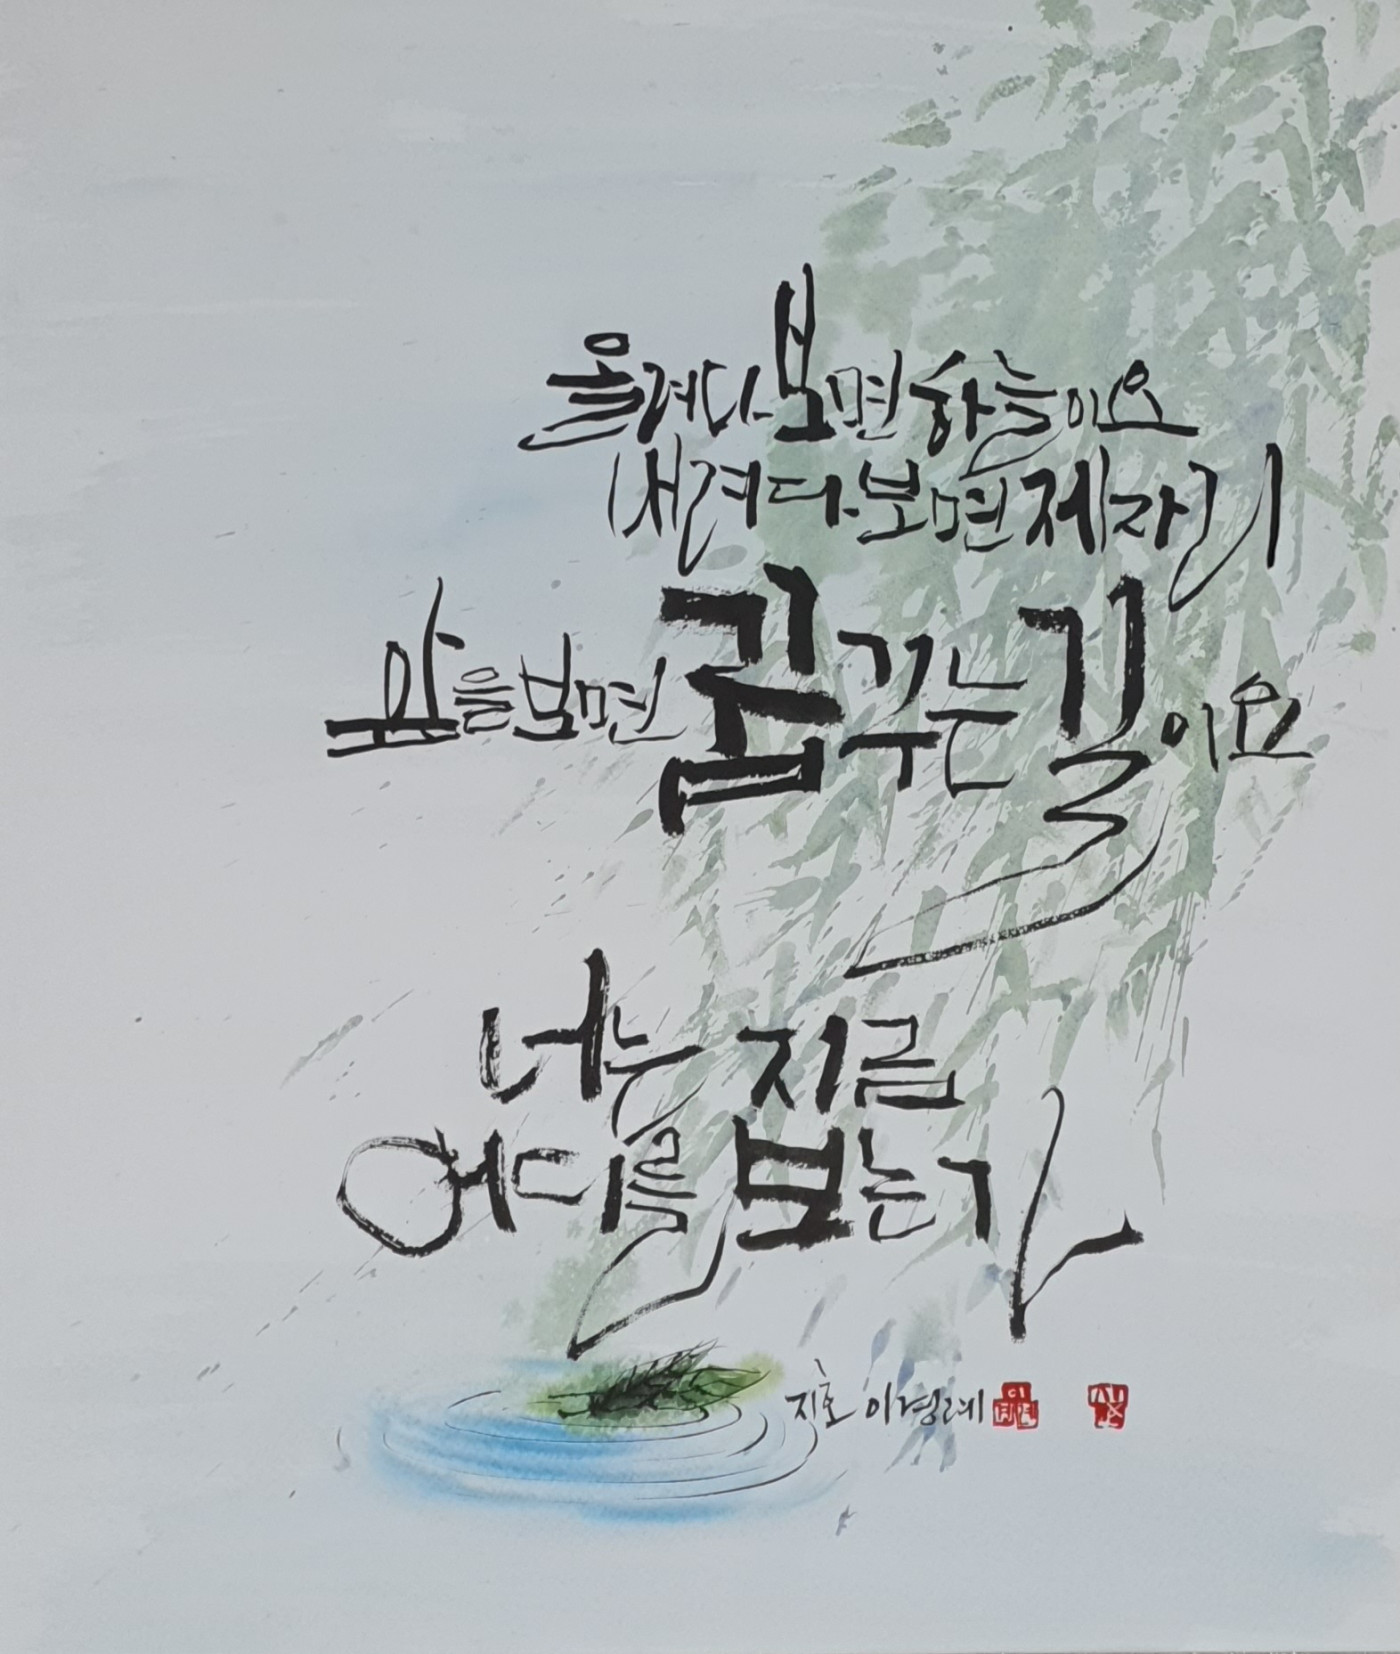 올려다보면 하늘이요
내려다보면 제자리
앞을보면 꿈꾸는 길이요
너는 지금
어디를 보는가
지호 이경례